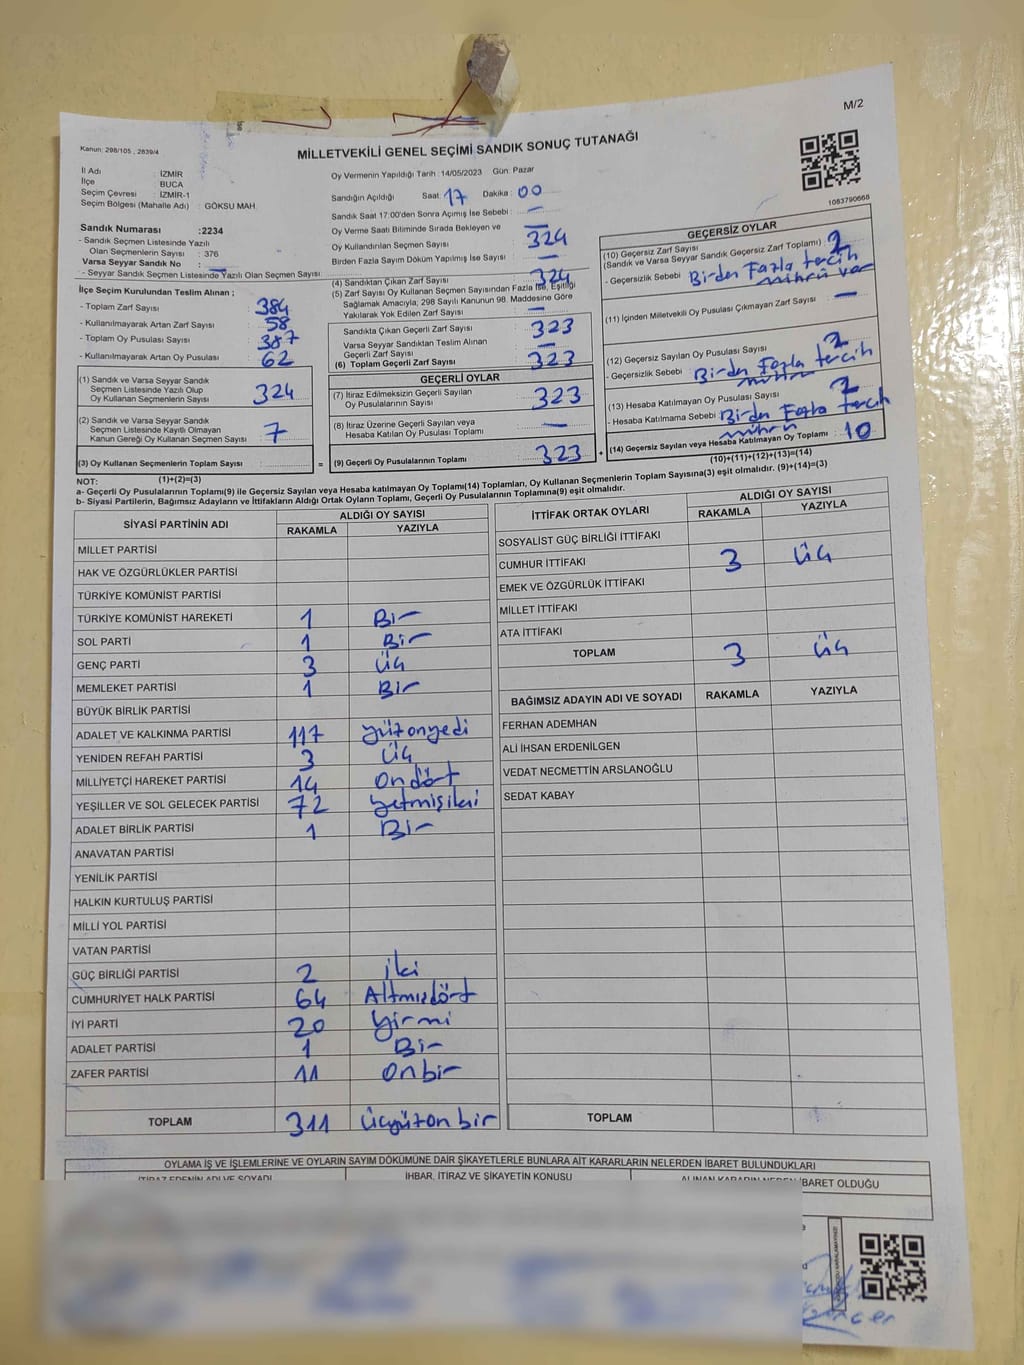 M/2
Kanun: 298/105 , 2839/4
MİLLETVEKİLİ GENEL SEÇİMİ SANDIK SONUÇ TUTANAĞI
1083790668
İl Adı : İZMİR
İlçe : BUCA
Seçim Çevresi : İZMİR-1
Seçim Bölgesi (Mahalle Adı) : GÖKSU MAH.
Sandık Numarası :2234
- Sandık Seçmen Listesinde Yazılı
Olan Seçmenlerin Sayısı : 376
Varsa Seyyar Sandık No : —
- Seyyar Sandık Seçmen Listesinde Yazılı Olan Seçmen Sayısı :
İlçe Seçim Kurulundan Teslim Alınan ;
- Toplam Zarf Sayısı : 384
- Kullanılmayarak Artan Zarf Sayısı : 58
- Toplam Oy Pusulası Sayısı : 387
- Kullanılmayarak Artan Oy Pusulası : 62
(1) Sandık ve Varsa Seyyar Sandık
Seçmen Listesinde Yazılı Olup
Oy Kullanan Seçmenlerin Sayısı 324
(2) Sandık ve Varsa Seyyar Sandık
Seçmen Listesinde Kayıtlı Olmayan
Kanun Gereği Oy Kullanan Seçmen Sayısı 7
(3) Oy Kullanan Seçmenlerin Toplam Sayısı
(1)+(2)=(3)
Oy Vermenin Yapıldığı Tarih : 14/05/2023 Gün: Pazar
Sandığın Açıldığı Saat: 17 Dakika : 00
Sandık Saat 17:00'den Sonra Açımış İse Sebebi : —
Oy Verme Saati Bitiminde Sırada Bekleyen ve —
Oy Kullandırılan Seçmen Sayısı 324
Birden Fazla Sayım Döküm Yapılmış İse Sayısı —
(4) Sandıktan Çıkan Zarf Sayısı 324
(5) Zarf Sayısı Oy Kullanan Seçmen Sayısından Fazla İse, Eşitliği
Sağlamak Amacıyla; 298 Sayılı Kanunun 98. Maddesine Göre
Yakılarak Yok Edilen Zarf Sayısı : —
Sandıkta Çıkan Geçerli Zarf Sayısı 323
Varsa Seyyar Sandıktan Teslim Alınan
Geçerli Zarf Sayısı —
(6) Toplam Geçerli Zarf Sayısı 323
GEÇERLİ OYLAR
(7) İtiraz Edilmeksizin Geçerli Sayılan
Oy Pusulalarının Sayısı 323
(8) İtiraz Üzerine Geçerli Sayılan veya
Hesaba Katılan Oy Pusulası Toplamı —
= (9) Geçerli Oy Pusulalarının Toplamı 323 +
GEÇERSİZ OYLAR
(10) Geçersiz Zarf Sayısı
(Sandık ve Varsa Seyyar Sandık Geçersiz Zarf Toplamı) : 2
- Geçersizlik Sebebi Birden Fazla tercih
mührü var
(11) İçinden Milletvekili Oy Pusulası Çıkmayan Zarf Sayısı : —
(12) Geçersiz Sayılan Oy Pusulası Sayısı 2
- Geçersizlik Sebebi Birden Fazla tercih
mührü
(13) Hesaba Katılmayan Oy Pusulası Sayısı 2
- Hesaba Katılmama Sebebi : Birden Fazla tercih
mührü
(14) Geçersiz Sayılan veya Hesaba Katılmayan Oy Toplamı 10
(10)+(11)+(12)+(13)=(14)
NOT:
a- Geçerli Oy Pusulalarının Toplamı(9) ile Geçersiz Sayılan veya Hesaba katılmayan Oy Toplamı(14) Toplamları, Oy Kullanan Seçmenlerin Toplam Sayısına(3) eşit olmalıdır. (9)+(14)=(3)
b- Siyasi Partilerin, Bağımsız Adayların ve İttifakların Aldığı Ortak Oyların Toplamı, Geçerli Oy Pusulalarının Toplamına(9) eşit olmalıdır.
SİYASİ PARTİNİN ADI ALDIĞI OY SAYISI
RAKAMLA YAZIYLA
MİLLET PARTİSİ
HAK VE ÖZGÜRLÜKLER PARTİSİ
TÜRKİYE KOMÜNİST PARTİSİ
TÜRKİYE KOMÜNİST HAREKETİ 1 Bir
SOL PARTİ 1 Bir
GENÇ PARTİ 3 üç
MEMLEKET PARTİSİ 1 Bir
BÜYÜK BİRLİK PARTİSİ
ADALET VE KALKINMA PARTİSİ 117 yüzonyedi
YENİDEN REFAH PARTİSİ 3 üç
MİLLİYETÇİ HAREKET PARTİSİ 14 ondört
YEŞİLLER VE SOL GELECEK PARTİSİ 72 yetmişiki
ADALET BİRLİK PARTİSİ 1 Bir
ANAVATAN PARTİSİ
YENİLİK PARTİSİ
HALKIN KURTULUŞ PARTİSİ
MİLLİ YOL PARTİSİ
VATAN PARTİSİ
GÜÇ BİRLİĞİ PARTİSİ 2 iki
CUMHURİYET HALK PARTİSİ 64 Altmışdört
İYİ PARTİ 20 yirmi
ADALET PARTİSİ 1 Bir
ZAFER PARTİSİ 11 onbir
TOPLAM 311 üçyüzonbir
İTTİFAK ORTAK OYLARI ALDIĞI OY SAYISI
RAKAMLA YAZIYLA
SOSYALİST GÜÇ BİRLİĞİ İTTİFAKI
CUMHUR İTTİFAKI 3 üç
EMEK VE ÖZGÜRLÜK İTTİFAKI
MİLLET İTTİFAKI
ATA İTTİFAKI
TOPLAM 3 üç
BAĞIMSIZ ADAYIN ADI VE SOYADI RAKAMLA YAZIYLA
FERHAN ADEMHAN
ALİ İHSAN ERDENİLGEN
VEDAT NECMETTİN ARSLANOĞLU
SEDAT KABAY
TOPLAM
OYLAMA İŞ VE İŞLEMLERİNE VE OYLARIN SAYIM DÖKÜMÜNE DAİR ŞİKAYETLERLE BUNLARA AİT KARARLARIN NELERDEN İBARET BULUNDUKLARI
İTİRAZ EDENİN ADI VE SOYADI İHBAR, İTİRAZ VE ŞİKAYETİN KONUSU ALINAN KARARIN NEDEN İBARET OLDUĞU